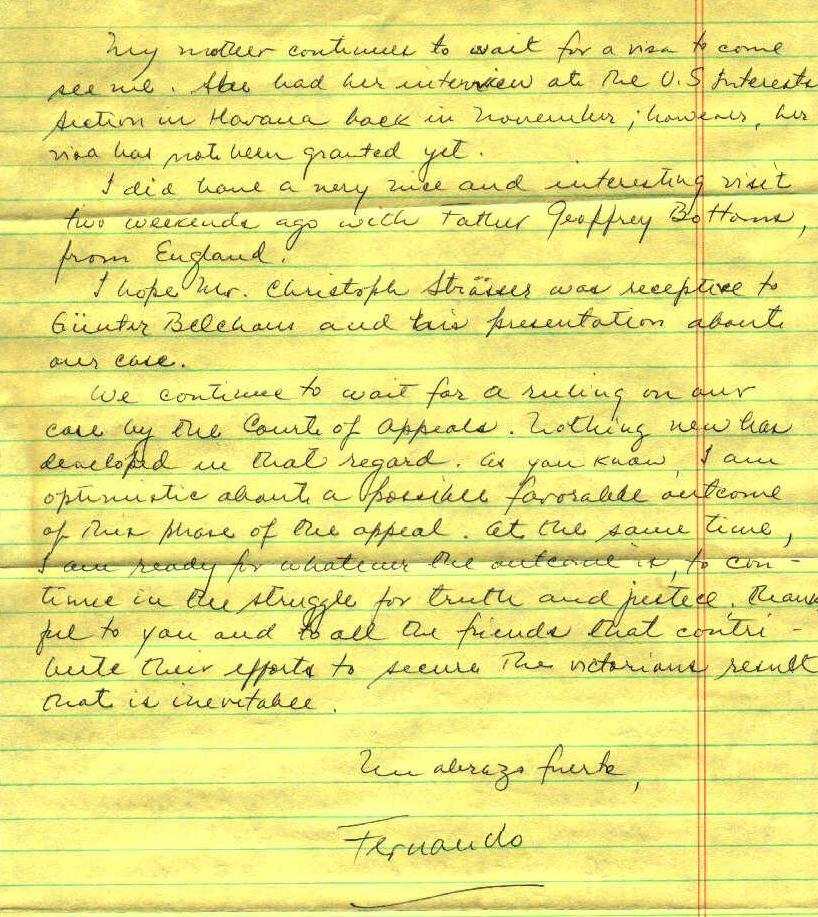 My mother continues to wait for a visa to come
see me. She had her interview at the U.S Interests
Section in Havana back in November; however, her
visa has not been granted yet.
I did have a very nice and interesting visit
two weekends ago with Father Geoffrey Bottoms,
from England.
I hope Mr. Christoph Strässer was receptive to
Günter Belchaus and his presentation about
our case.
We continue to wait for a ruling on our
case by the Court of Appeals. Nothing new has
developed in that regard. As you know, I am
optimistic about a possible favorable outcome
of this phase of the appeal. At the same time,
I am ready for whatever the outcome is, to con-
tinue in the struggle for truth and justice, thank
ful to you and to all the friends that contri-
bute their efforts to secure the victorious result
that is inevitable.
Un abrazo fuerte,
Fernando